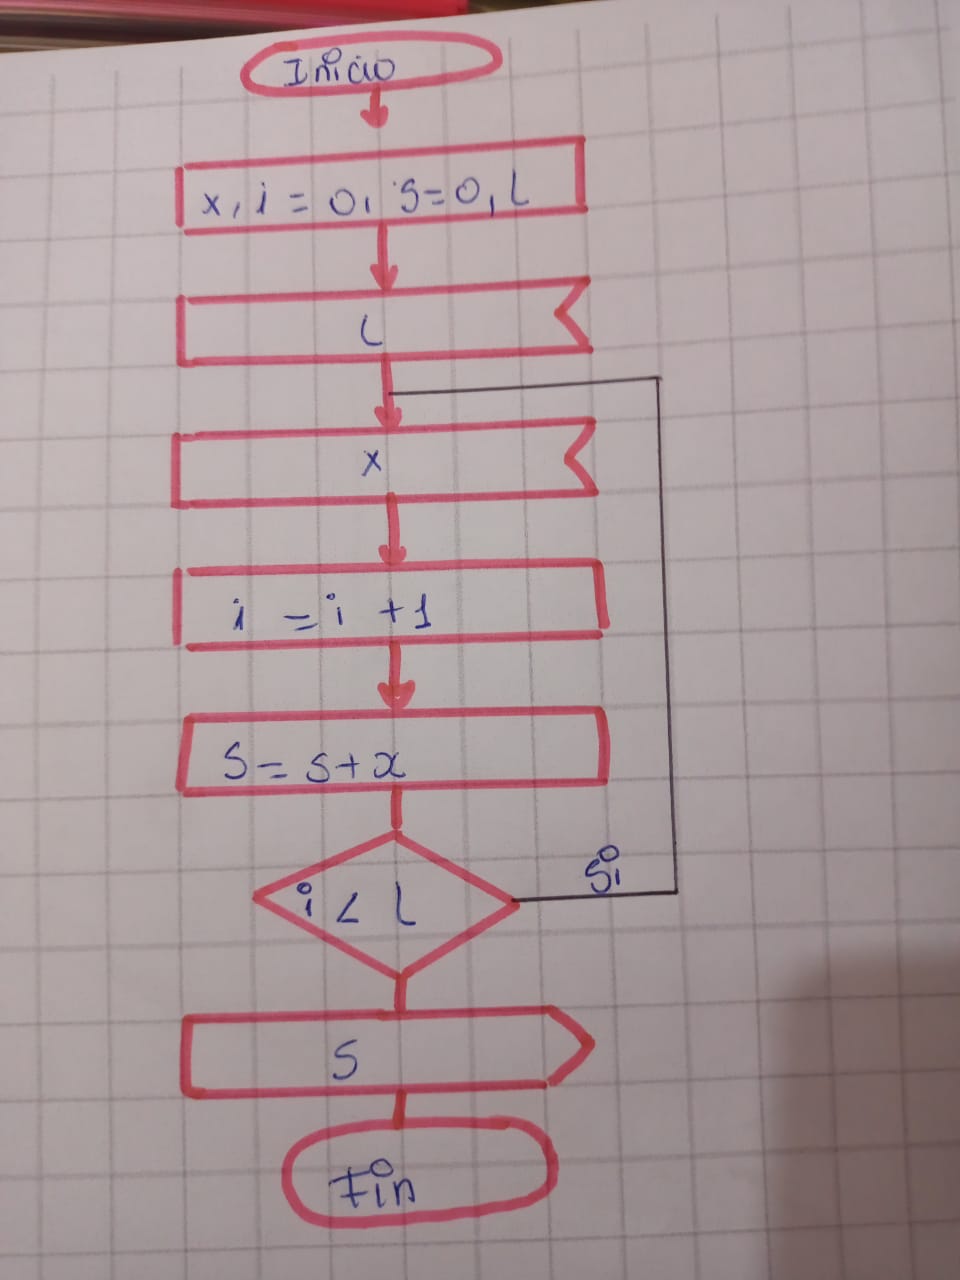 Inicio
x, i = 0, s=0, L
L
x
i = i + 1
S = s+x
i < L
Si
S
Fin